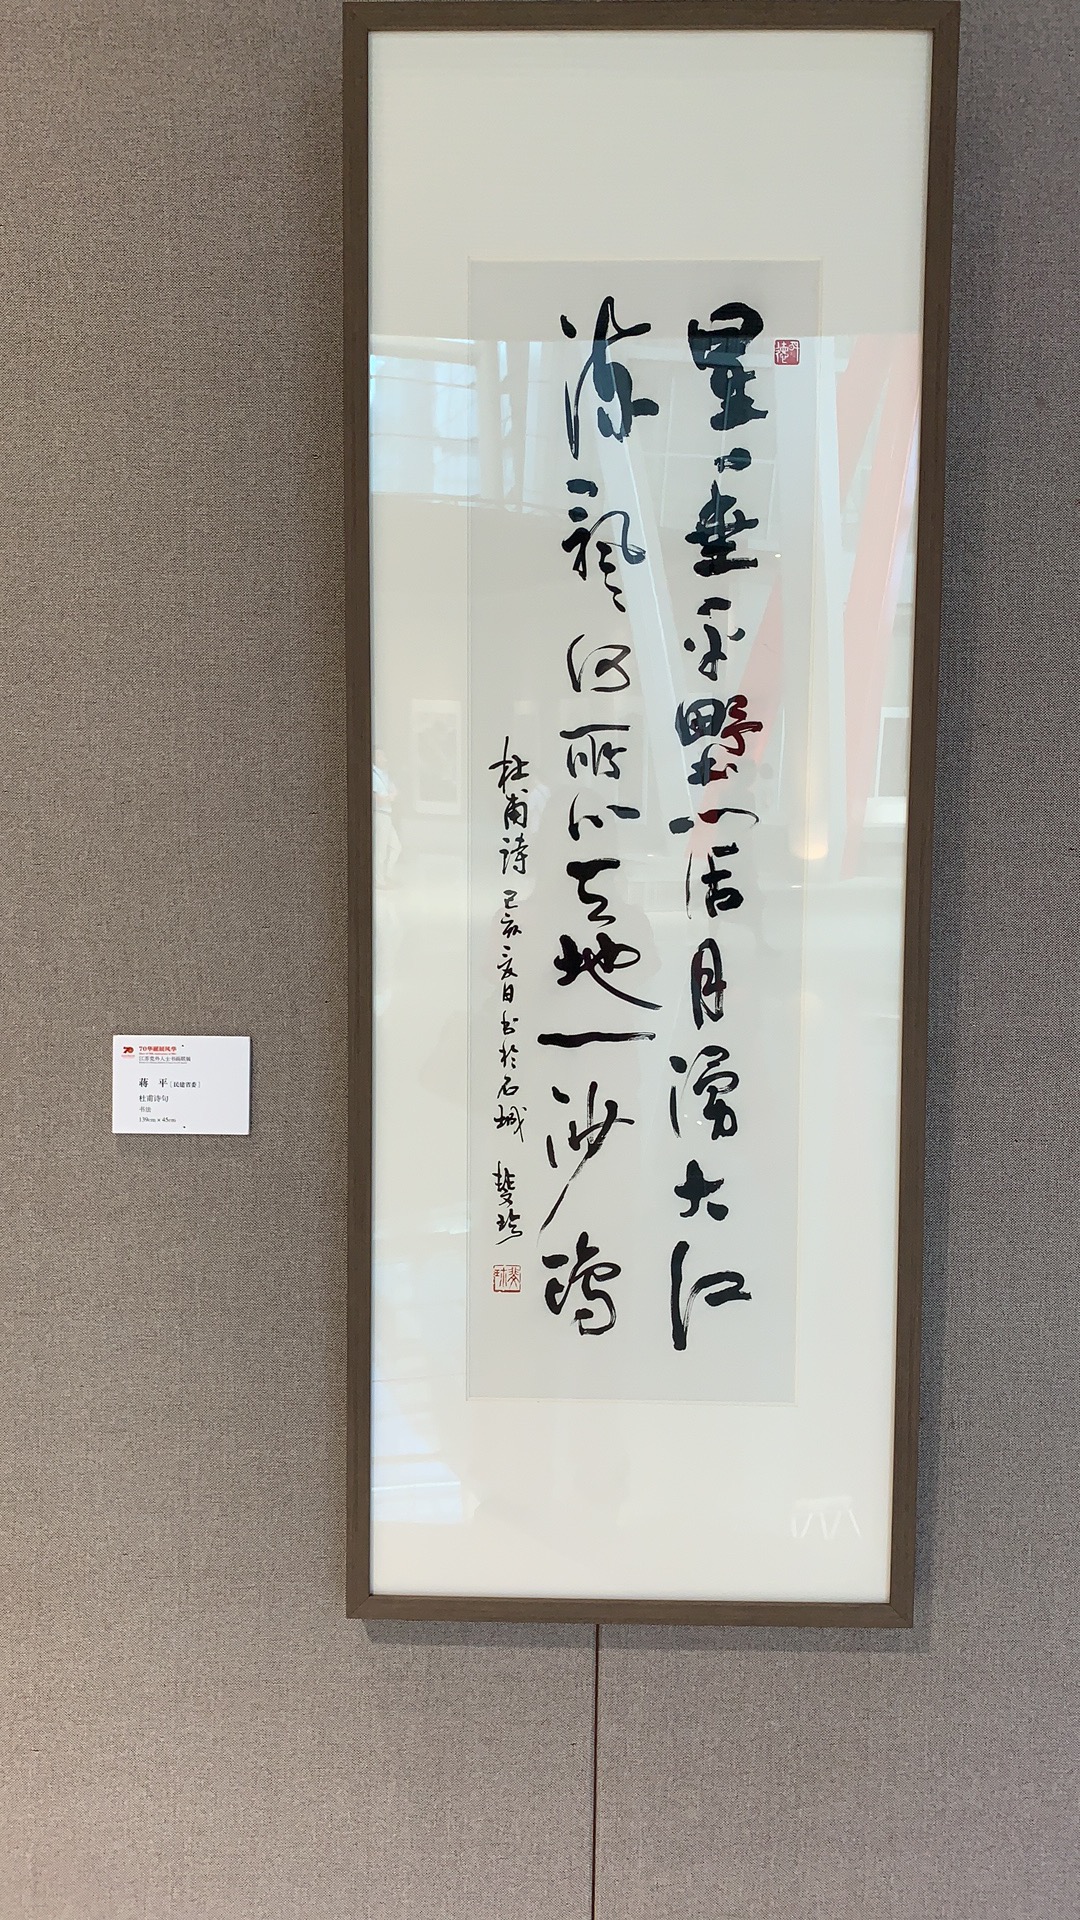 星垂平野闊月湧大江
流飄〻何所似天地一沙鷗
杜甫詩 己亥夏日书於石城
70华诞展风华
江苏党外人士书画联展
蒋 平 [民建省委]
杜甫诗句
书法
139cm × 45cm